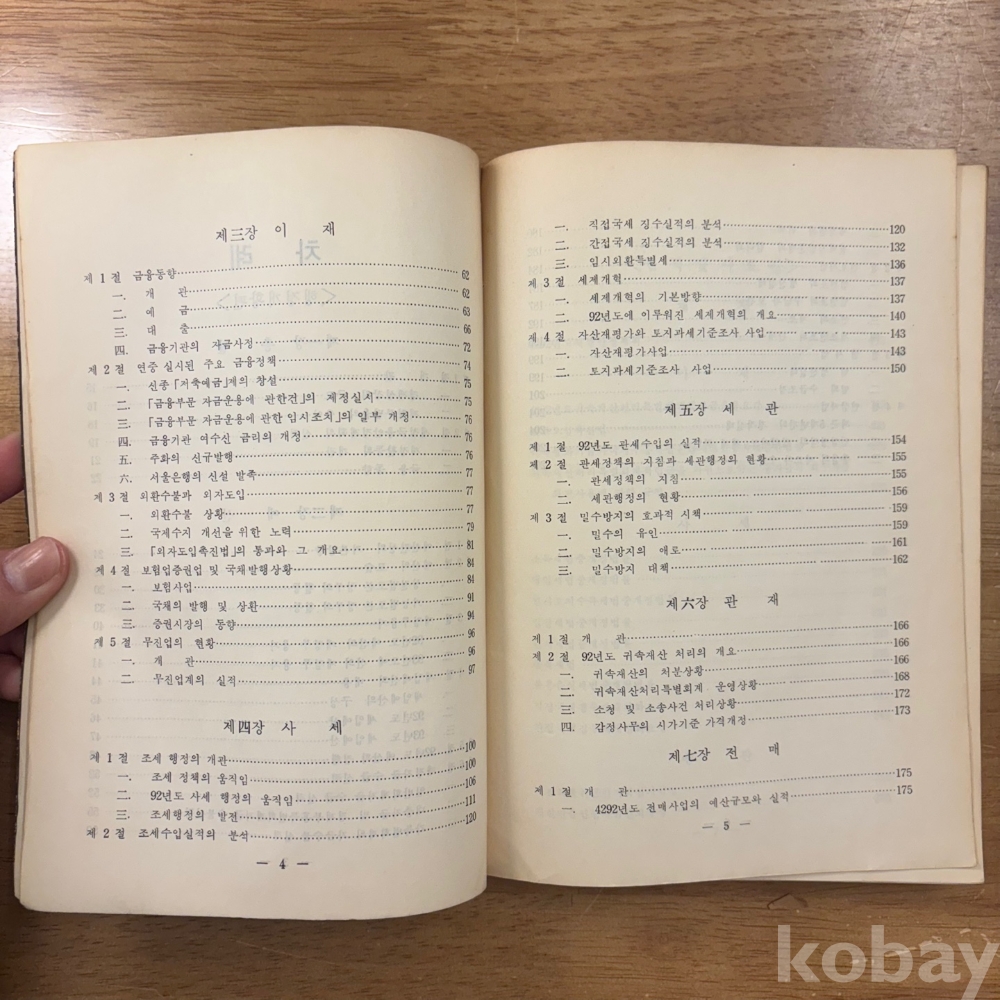 제三장 이 재
제 1 절 금융동향 62
一. 개 관 62
二. 예 금 63
三. 대 출 66
四. 금융기관의 자금사정 72
제 2 절 연중 실시된 주요 금융정책 74
一. 신종「저축예금」제의 창설 75
二. 「금융부문 자금운용에 관한건」의 제정실시 75
三. 「금융부문 자금운용에 관한 임시조치」의 일부 개정 76
四. 금융기관 여수신 금리의 개정 76
五. 주화의 신규발행 76
六. 서울은행의 신설 발족 77
제 3 절 외환수불과 외자도입 77
一. 외환수불 상황 77
二. 국제수지 개선을 위한 노력 79
三. 「외자도입촉진법」의 통과와 그 개요 81
제 4 절 보험업증권업 및 국채발행상황 84
一. 보험사업 84
二. 국채의 발행 및 상환 91
三. 증권시장의 동향 94
제 5 절 무진업의 현황 96
一. 개 관 96
二. 무진업계의 실적 97
제四장 사 세
제 1 절 조세 행정의 개관 100
一. 조세 정책의 움직임 100
二. 92년도 사세 행정의 움직임 106
三. 조세행정의 발전 111
제 2 절 조세수입실적의 분석 120
— 4 —
一. 직접국세 징수실적의 분석 120
二. 간접국세 징수실적의 분석 132
三. 임시외환특별세 136
제 3 절 세제개혁 137
一. 세제개혁의 기본방향 137
二. 92년도에 이루워진 세제개혁의 개요 140
제 4 절 자산재평가와 토지과세기준조사 사업 143
一. 자산재평가사업 143
二. 토지과세기준조사 사업 150
제五장 세 관
제 1 절 92년도 관세수입의 실적 154
제 2 절 관세정책의 지침과 세관행정의 현황 155
一. 관세정책의 지침 155
二. 세관행정의 현황 156
제 3 절 밀수방지의 효과적 시책 159
一. 밀수의 유인 159
二. 밀수방지의 애로 161
三. 밀수방지 대책 162
제六장 관 재
제 1 절 개 관 166
제 2 절 92년도 귀속재산 처리의 개요 166
一. 귀속재산의 처분상황 166
二. 귀속재산처리특별회계 운영상황 168
三. 소청 및 소송사건 처리상황 172
四. 감정사무의 시가기준 가격개정 173
제七장 전 매
제 1 절 개 관 175
一. 4292년도 전매사업의 예산규모와 실적 175
— 5 —
kobay